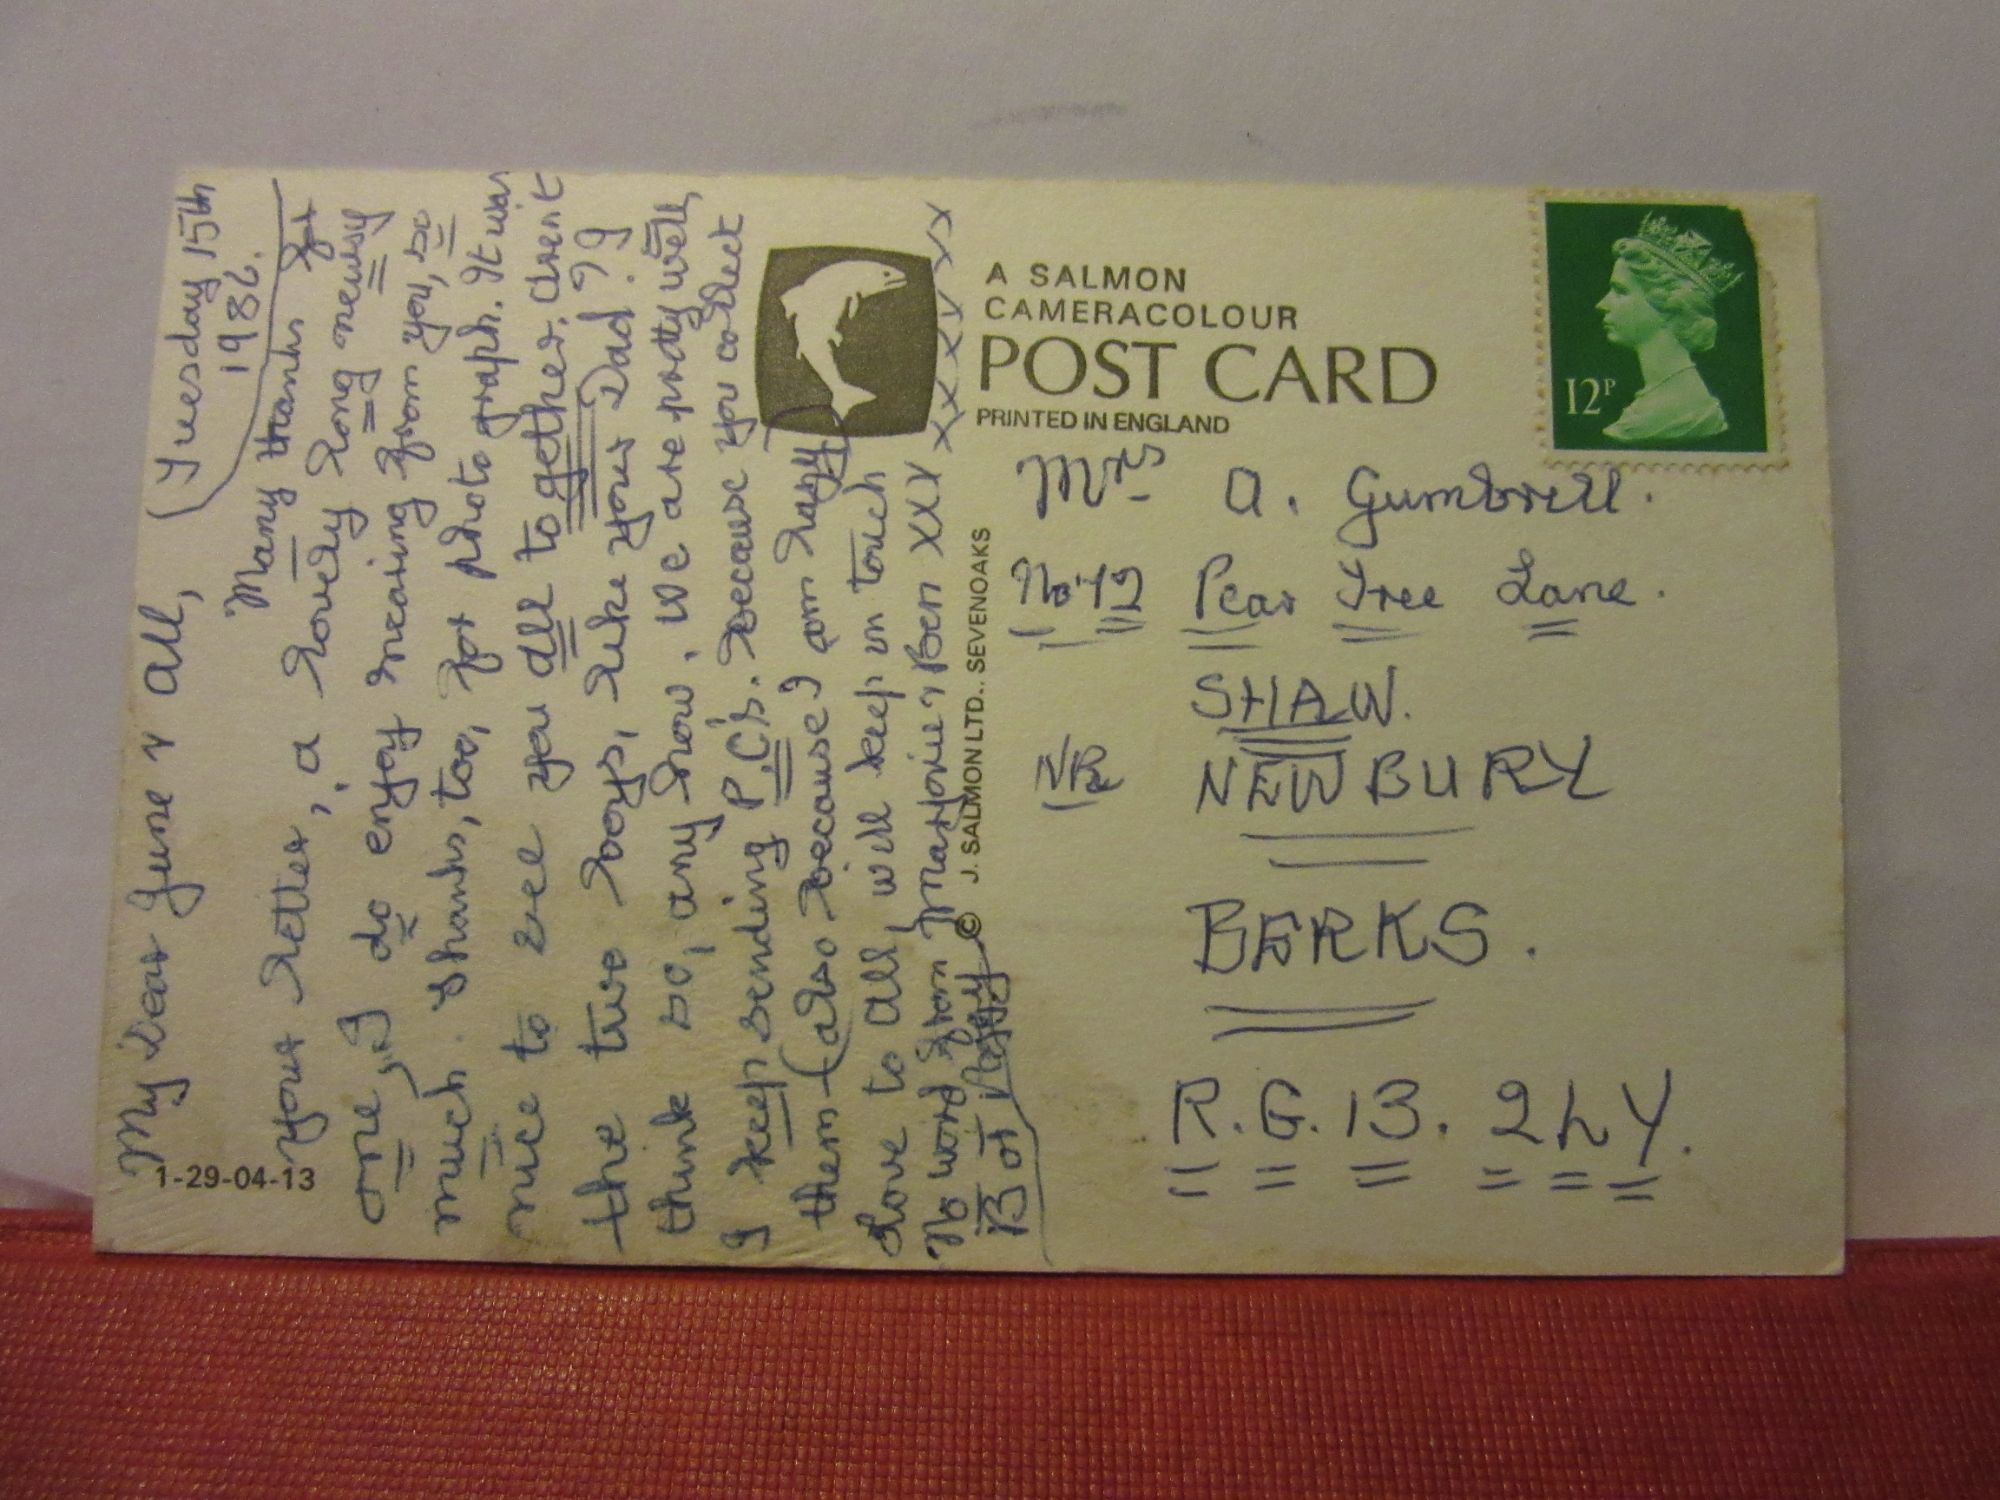 My dear June & all, (Tuesday 15th
1986.
Many thanks for
your letter, a lovely long newsy
one, I do enjoy hearing from you, so
much. Thanks, too, for photo graph. It was
nice to see you all to gether. Arent
the two boys, like your Dad?? I
think so, any how. We are pretty well,
I keep sending P.C's. because you collect
them (also because I am lazy)
Love to all, will keep in touch
No word from Marjorie & Ben XXX XXXXXXX
B or Peggy
1-29-04-13
© J. SALMON LTD., SEVENOAKS
A SALMON
CAMERACOLOUR
POST CARD
PRINTED IN ENGLAND
12P
Mrs A. Gumbrell.
No. 12 Pear Tree Lane.
SHAW.
NR NEWBURY
BERKS.
R.G. 13. 2LY.